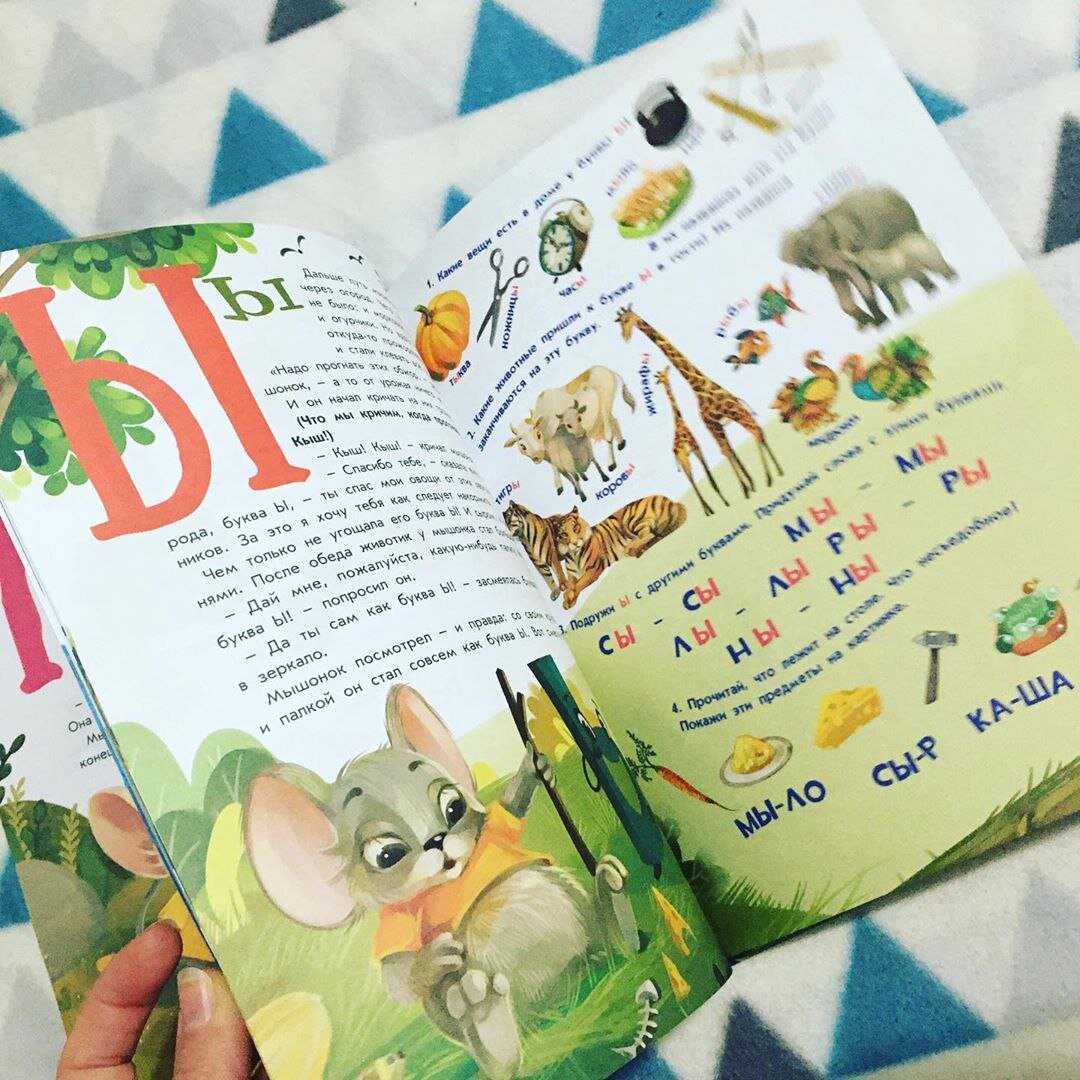 Ы ы
Дальше путь
через огород.
не было: и
и огурчики. Но
откуда-то
и стали клевать
«Надо прогнать этих
шонок, – а то от урожая
И он начал кричать на них
(Что мы кричим, когда
Кыш!)
– Кыш! Кыш! – кричал
– Спасибо тебе, – сказала
рода, буква Ы, – ты спас мои овощи от этих
ников. За это я хочу тебя как следует
Чем только не угощала его буква Ы! И
нями. После обеда животик у мышонка стал
– Дай мне, пожалуйста, какую-нибудь
буква Ы! – попросил он.
– Да ты сам как буква Ы! – засмеялась
в зеркало.
Мышонок посмотрел – и правда: со своим
и палкой он стал совсем как буква Ы. Вот
Она
конец
1. Какие вещи есть в доме у буквы Ы?
тыква
ножницы
часы
2. Какие животные пришли к букве Ы в гости? Их названия
заканчиваются на эту букву.
тигры
коровы
жирафы
рыбы
индюки
3. Подружи Ы с другими буквами. Придумай слова с этими буквами.
СЫ – СЫ МЫ – МЫ
ЛЫ – ЛЫ РЫ – РЫ
НЫ – НЫ
4. Прочитай, что лежит на столе. Что несъедобное?
Покажи эти предметы на картинке.
МЫ-ЛО СЫ-Р КА-ША